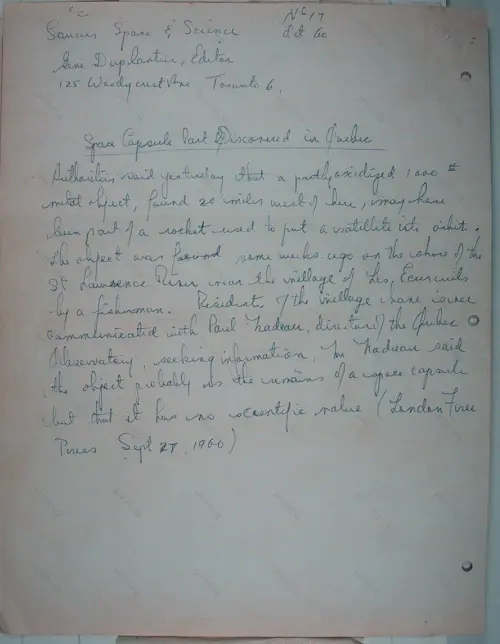 Saucers Space & Science No 17
Oct 60
Gene Duplantier, Editor
125 Woodycrest Ave Toronto 6.
Space Capsule Part Discovered in Quebec
Authorities said yesterday that a partly oxidized 1000 #
metal object, found 20 miles west of here, may have
been part of a rocket used to put a satellite into orbit.
The object was found some weeks ago on the shore of the
St Lawrence River near the village of Les Ecureuils
by a fisherman. Residents of the village have since
communicated with Paul Nadeau, director of the Quebec
Observatory, seeking information. Mr Nadeau said
the object probably is the remains of a space capsule
but that it has no scientific value (London Free
Press Sept 27, 1960)